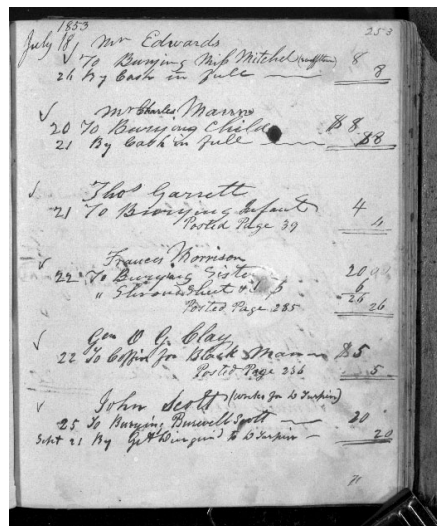 1853
253
July 18, Mr Edwards
To Burying Miss Mitchel 8
26 By Cash in full 8
Mr Charles Mann
20 To Burying Child $8
21 By Cash in full $8
Thos Garrett
21 To Burying Infant 4
Posted Page 39 4
Frances Morrison
22 To Burying Sister 20
" Shroud Sheet & 6
26
Posted Page 235 26
Gen O G Clay
22 To Coffin for Black Man $5
Posted Page 236 5
John Scott (works for D Turpin)
25 To Burying Burwell Scott 20
Sept 21 By to D Turpin 20